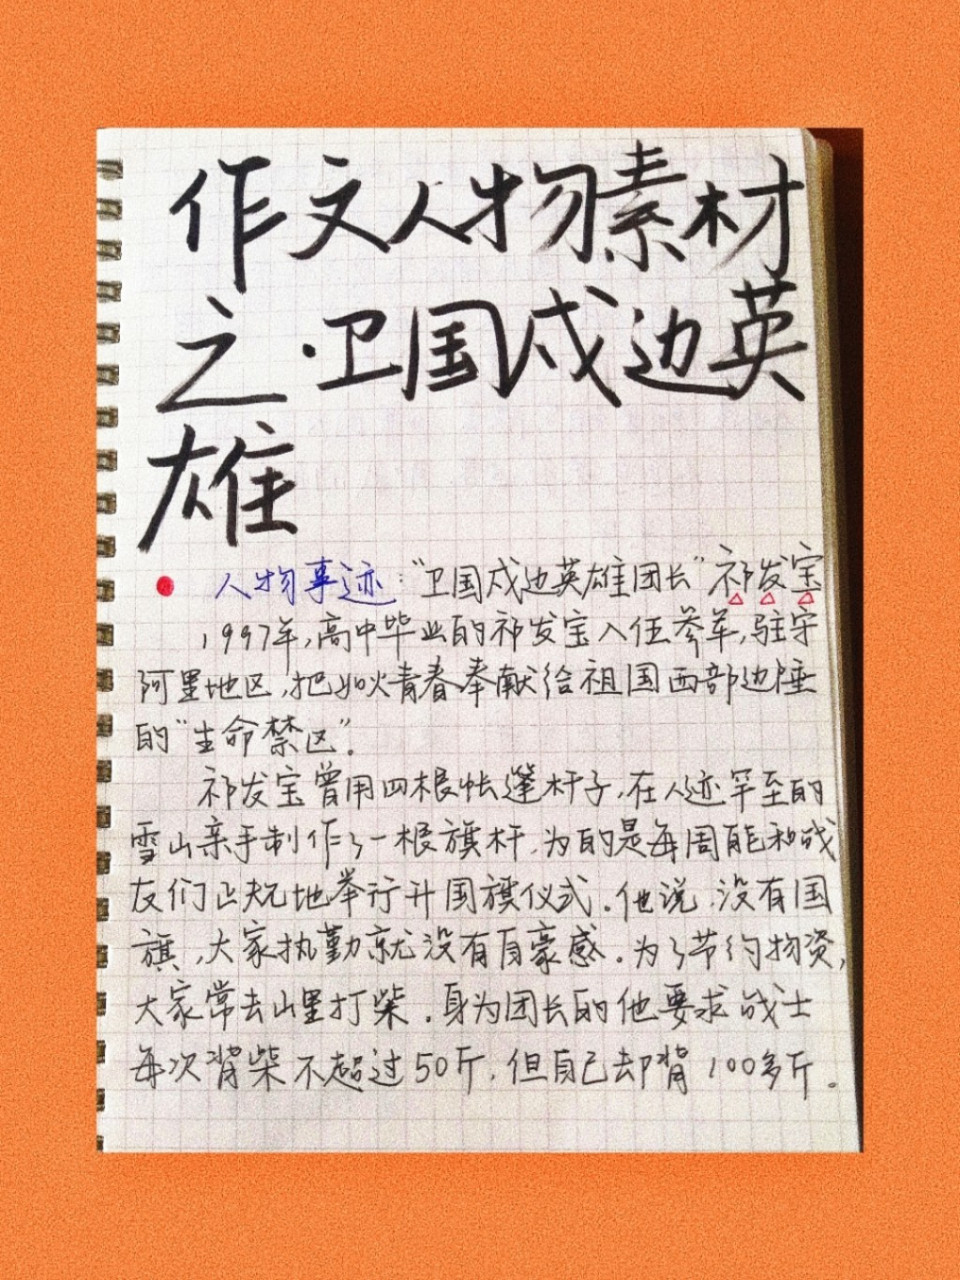 作文人物素材
之·卫国戍边英
雄
人物事迹:“卫国戍边英雄团长”祁发宝
1997年,高中毕业的祁发宝入伍参军,驻守
阿里地区,把如火青春奉献给祖国西部边陲
的“生命禁区”。
祁发宝曾用四根帐篷杆子,在人迹罕至的
雪山亲手制作了一根旗杆,为的是每周能和战
友们正规地举行升国旗仪式.他说,没有国
旗,大家执勤就没有自豪感.为了节约物资,
大家常去山里打柴.身为团长的他要求战士
每次背柴不超过50斤,但自己却背100多斤。